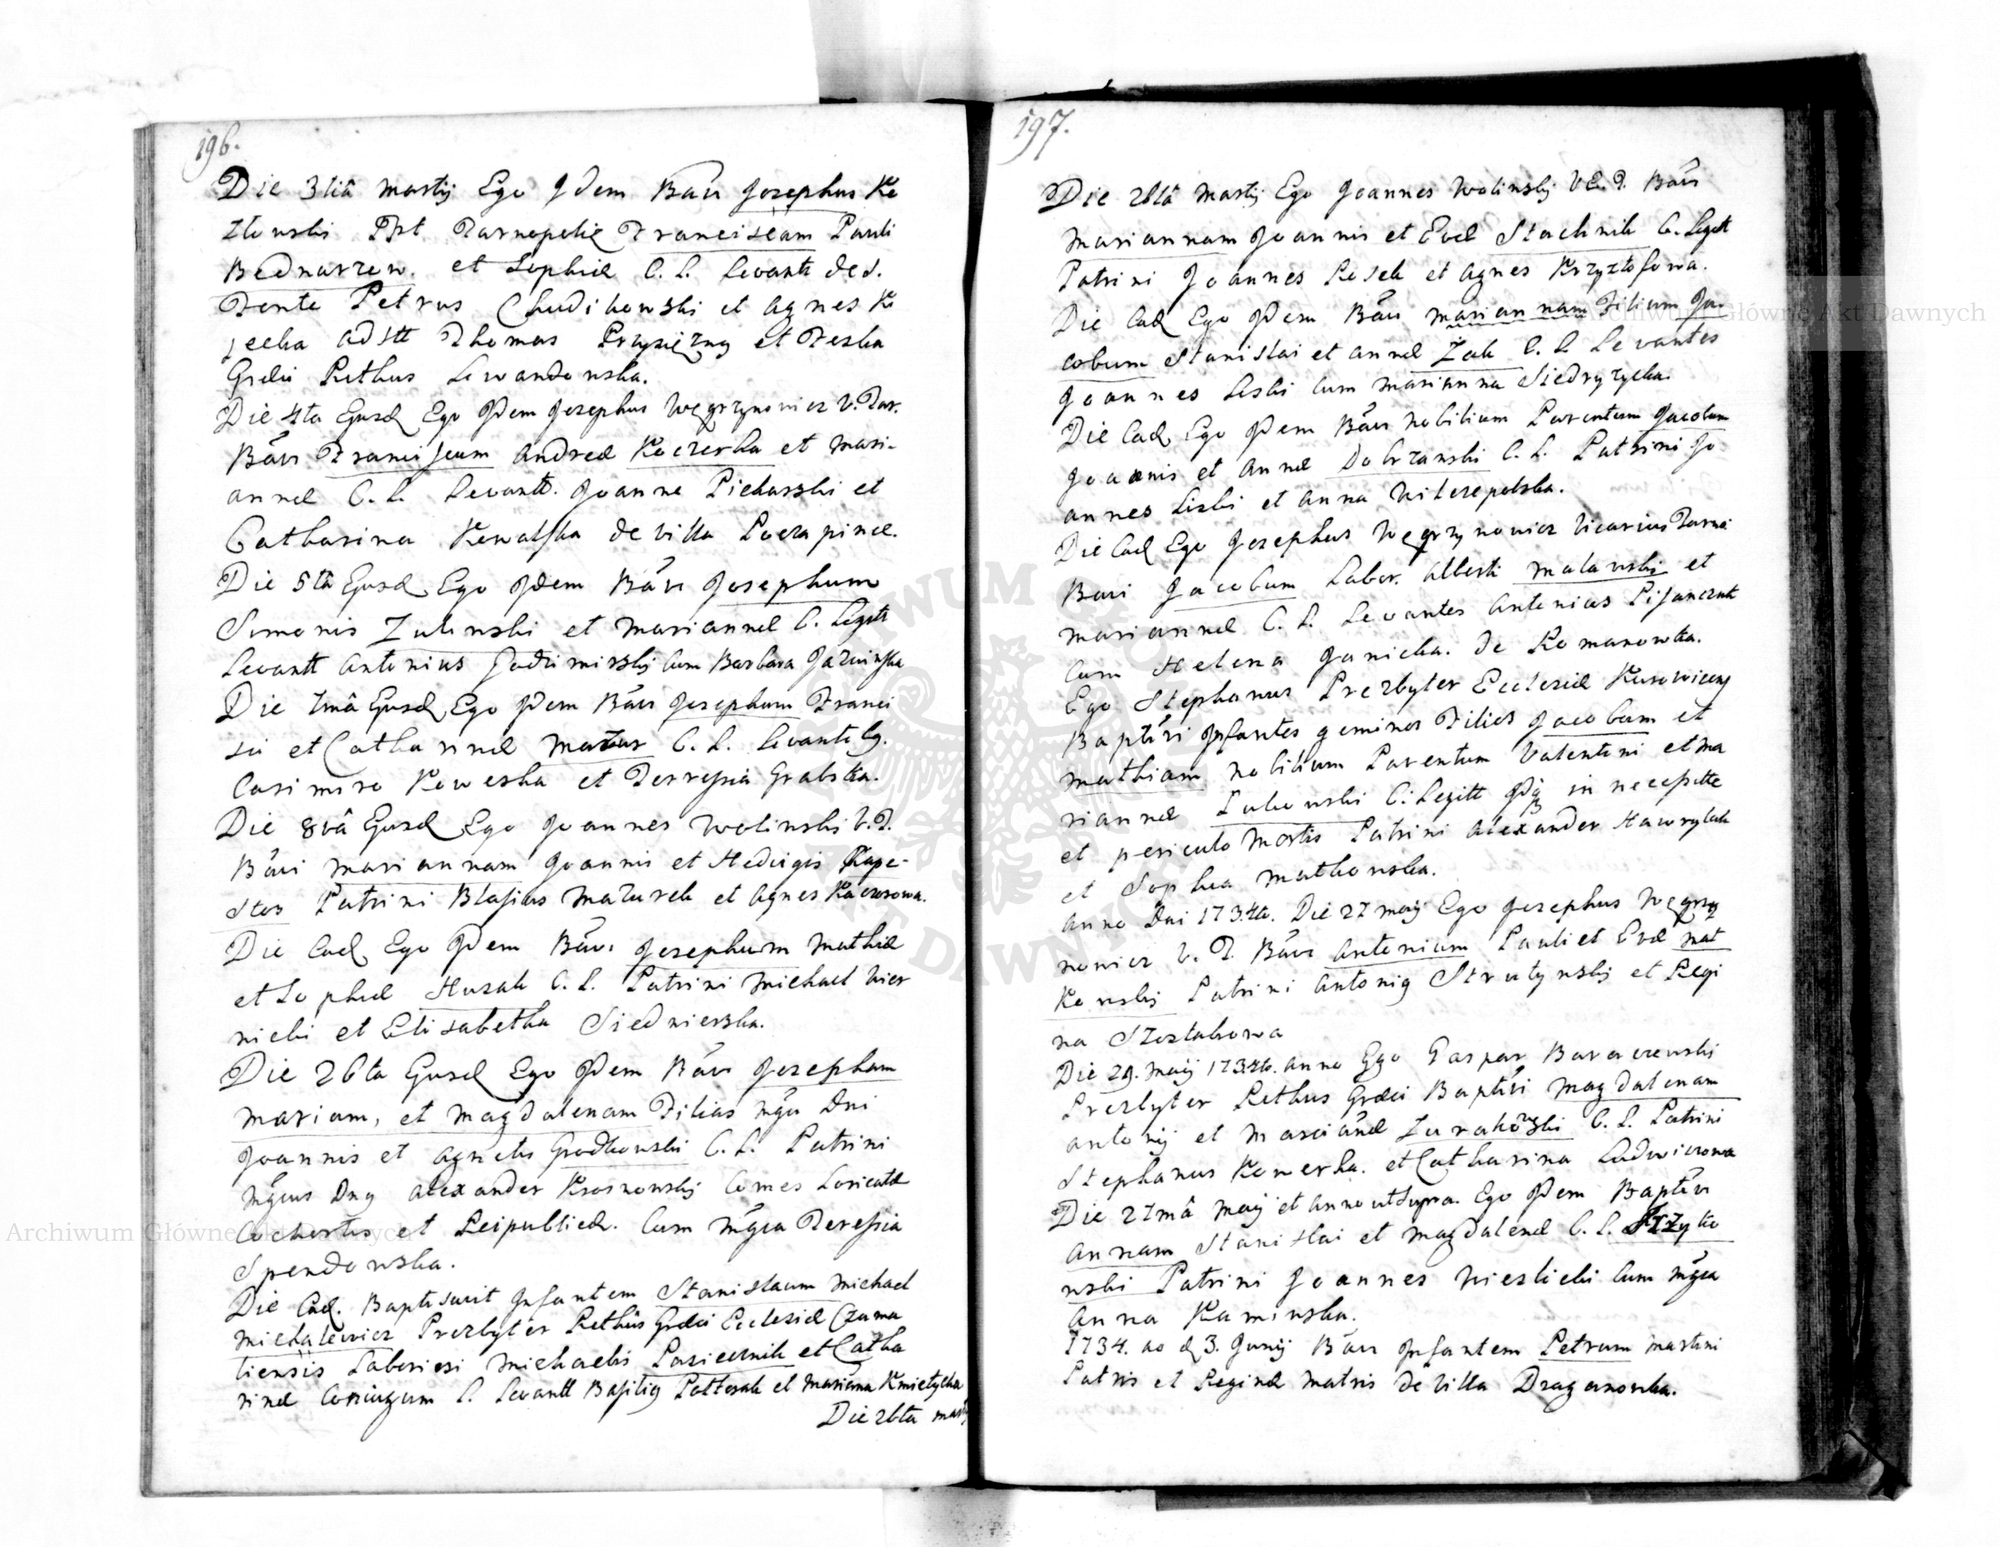 196.
Die 3tiâ Martij Ego Idem Bāvi Josephus Ko
zlowski Ppt Tarnopolię Franciscam Pauli
Bednarzow. et Sophiæ C. L. Levantt de S.
Fonte Petrus Chudikowski et Agnes K
jecka Adstt Thomas Przysięzny et Teska
Græci Rithus Lewandowska.
Die 4ta Ejusd Ego Idem Josephus Węgrzynowicz V. Tar.
Bāvi Franciscum Andreæ Koczerka et Mari-
annæ C. L. Levantt. Joanne Piekarski et
Catharina Kowalska de Villa Poczapinæ.
Die 5tâ Ejusd Ego Idem Bāvi Josephum
Simonis Zulinski et Mariannæ C. Legitt
Levantt Antonius Jodzimirskij cum Barbara Jazwinska
Die 7mâ Ejusd Ego Idem Bāvi Josephum Franci
sci et Catharinæ Mazur C. L. Levantib9.
Casimiro Kowerka et Terresia Grabska.
Die 8vâ Ejusd Ego Joannes Wolinski V. T.
Bāvi Mariannam Joannis et Hedvigis Kape-
stos Patrini Blasius Mazurek et Agnes Kaczorowa.
Die Ead Ego Idem Bāvi Josephum Mathiæ
et Sophiæ Husak C. L. Patrini Michael Wier
nicki et Elisabetha Siednierska.
Die 26ta Ejusd Ego Idem Bāvi Josepham
Mariam, et Magdalenam Filias Mgci Dni
Joannis et Agnetis Grodkowski C. L. Patrini
Mgcus Dnq Alexander Krosnowskij Comes Loricatæ
Cochortis et Reipublicæ. Cum Mgca Teressia
Spendowska.
Die Ead. Baptisavit Infantem Stanislaum Michael
Michalewicz Prezbyter Rithūs Græci Ecclesiæ Czuma
liensis Laboriosi Michaelis Pasiecznik et Catha
rinæ Coniugum L. Levantt Basiliq Pottorak et Mariana Kmietycka
Die 26ta Martij
197.
Die 26tâ Martij Ego Joannes Wolinskij V. E. T. Bāvi
Mariannam Joannis et Evæ Stachnik C. Legitt
Patrini Joannes Losek et Agnes Krzysztofowa.
Die Ead Ego Idem Bāvi Mariannam Filium Ja-
cobum Stanislai et Annæ Zak C. L. Levantes
Joannes Liski cum Marianna Siedrzycka.
Die Ead Ego Idem Bāvi Nobilium Parentum Jacobum
Joannis et Annæ Dobrzanski C. L. Patrini Jo
annes Liski et Anna Witoszepolska.
Die Ead Ego Josephus Węgrzynowicz Vicarius Tarnā
Bavi Jacobum Labor. Alberti Malawskij et
Mariannæ C. L. Levantes Antonius Pisanczuk
Cum Helena Janicka. de Romanowka.
Ego Stephanus Prezbyter Ecclesiæ Kurowicens
Baptīvi Infantes geminos Filios Jacobum et
Mathiam Nobilium Parentum Valentini et Ma
riannæ Lukowski C. Legitt in necessitte
et periculo Mortis Patrini Alexander Hawrylak
et Sophia Matkowska.
Anno Dni 1734to. Die 27 Maij Ego Josephus Węgrzy
nowicz V. T. Bāvi Antonium Pauli et Evæ Mat
kowskij Patrini Antoniq Strutynskij et Regi
na Szostakowa
Die 29. Maij 1734to. Anno Ego Gaspar Baraczewski
Prezbyter Rithus Græci Baptīvi Magdalenam
Antonij et Mariānæ Zurakowski C. L. Patrini
Stephanus Kowerka. et Catharina Ludwiczowa
Die 27mâ Maij et Anno utSupra. Ego Idem Baptīvi
Annam Stanislai et Magdalenæ C. L. Strzyko
wski Patrini Joannes Wieslicki Cum Mgca
Anna Kaminska.
1734. ao d 3. Junij Bāvi Infantem Petrum Martini
Patris et Reginæ Matris de Villa Draganowka.
Archiwum Główne Akt Dawnych
Archiwum Główne Akt Dawnych